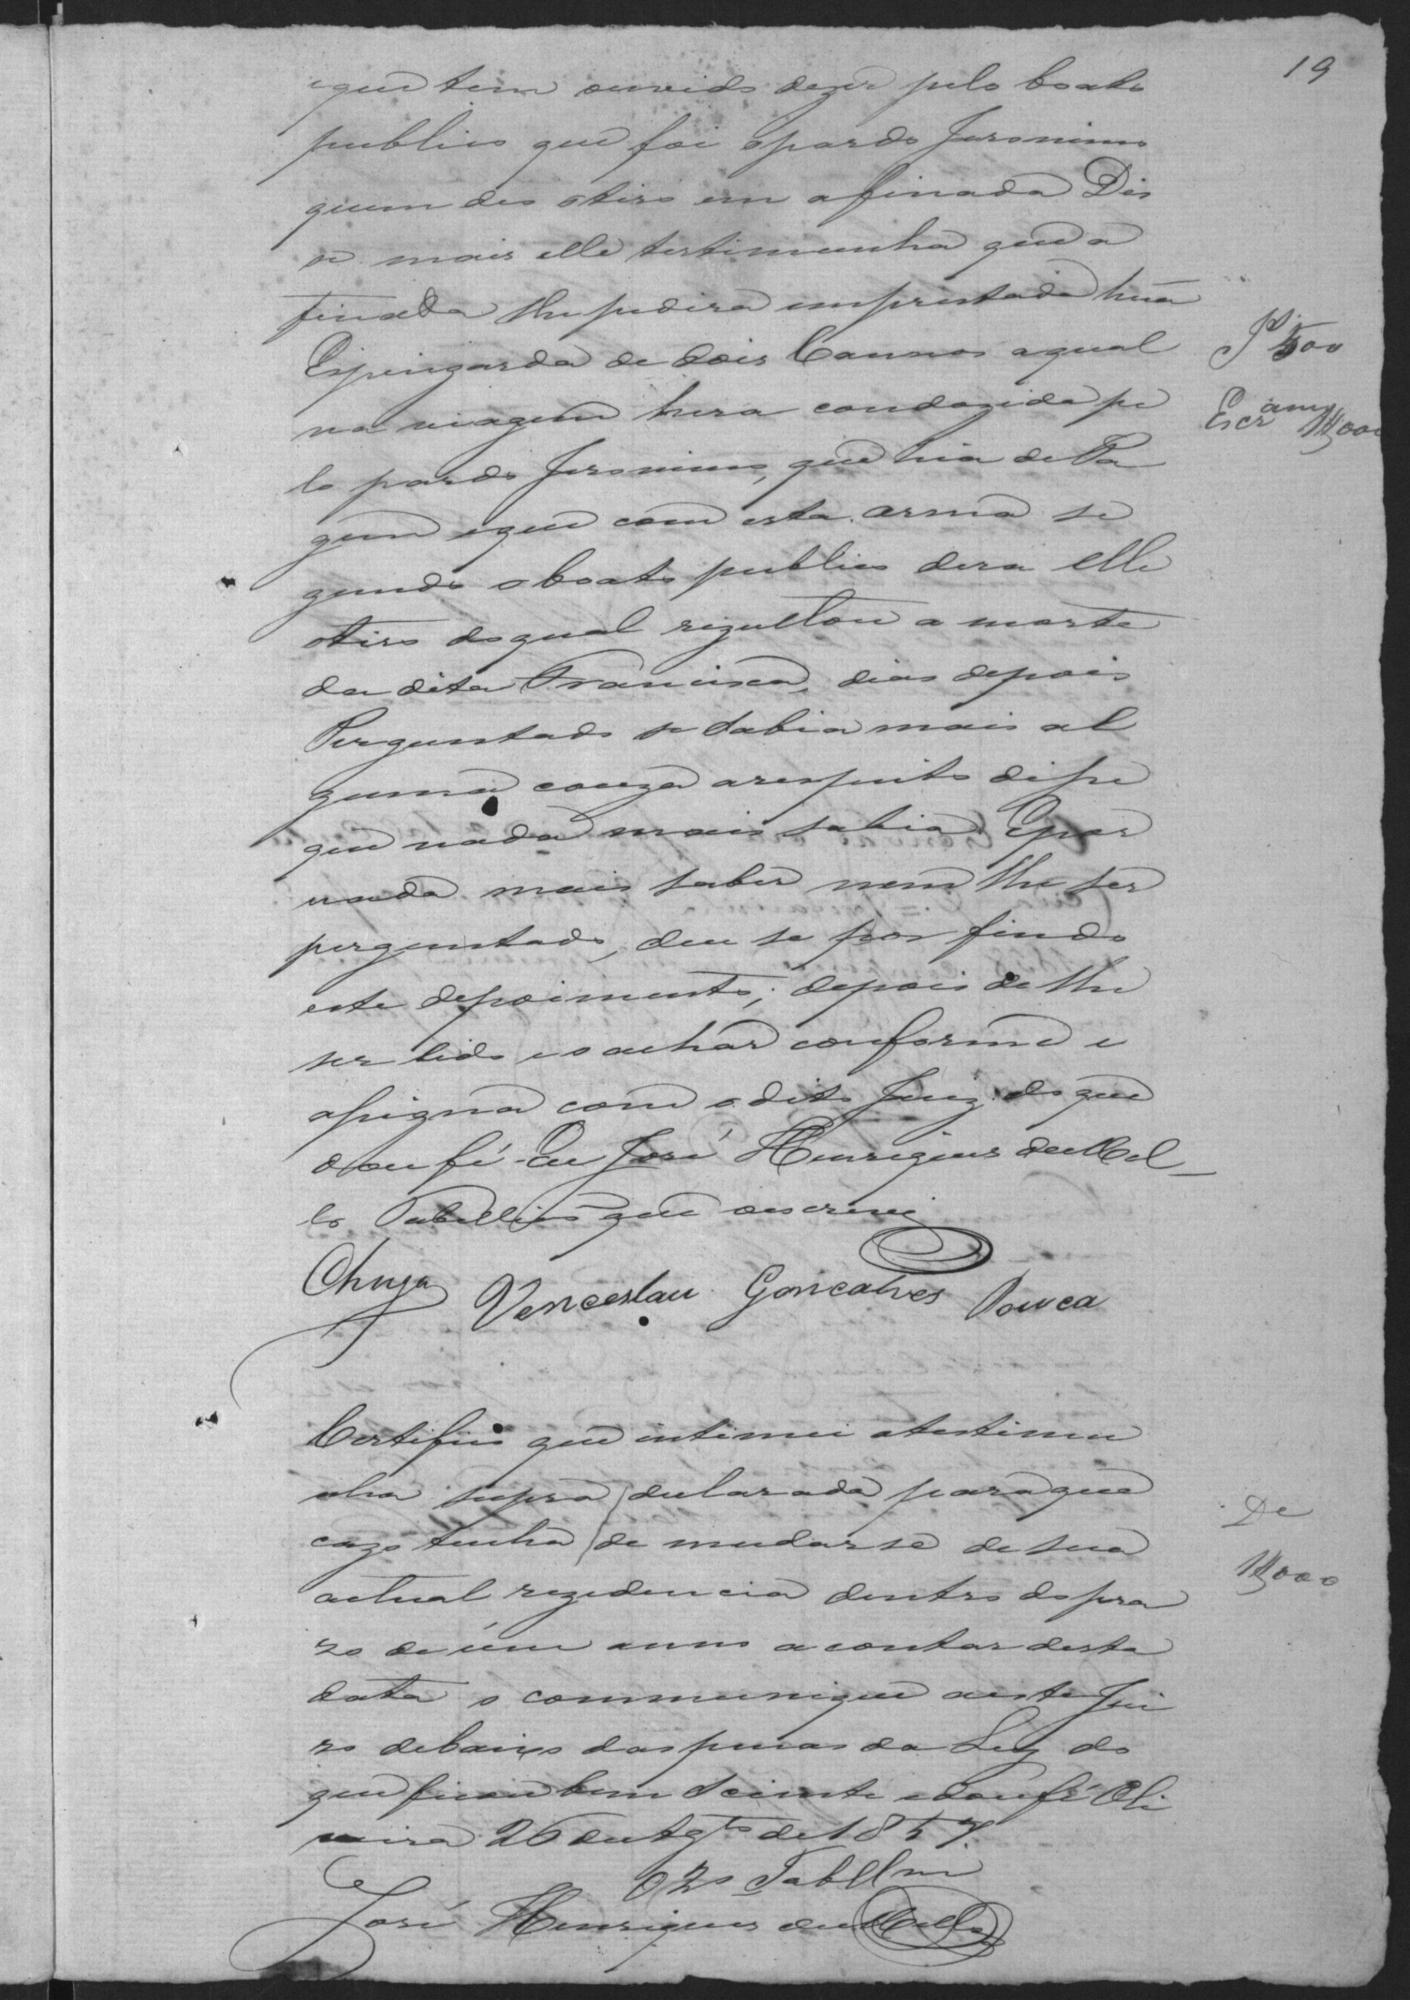 19
e que tem ouvido dezer pelo boato
publico que foi o pardo Jeronimo
quem deo o tiro em a finada Dis
se mais elle testimunha que a
finada lhe pedira emprestada huã
Espingarda de dois Cannos a qual
na viagem hera condozida pe
lo pardo Jeronimo, que hia de Pa
gem e que com esta arma se
gundo o boato publico dera elle
o tiro do qual rezultou a morte
da dita Francisca, dias depois
Perguntado se sabia mais al
guma couza a respeito disse
que nada mais sabia. E por
nada mais saber nem lhe ser
perguntado, deu se por findo
este depoimento; depois de lhe
ser lido e o achar conforme e
assigna com o dito Juiz do que
dou fé. Eu José Henriques de Mel
lo Tabellião que o escrevi
Jº 500
Escr am 1$000
Venceslau Gonçalves
Certifico que intimei a testimu
nha supra declarada para que
cazo tenha de mudar se de sua
actual rezidencia dentro do pra
zo de um anno a contar desta
data o communique a este Jui
zo debaixo das penas da Ley do
que ficou bem sciente e dou fé Oli
veira 26 de Agto de 1857.
O 2º Tabellm
José Henriques de Mello
De
1$000